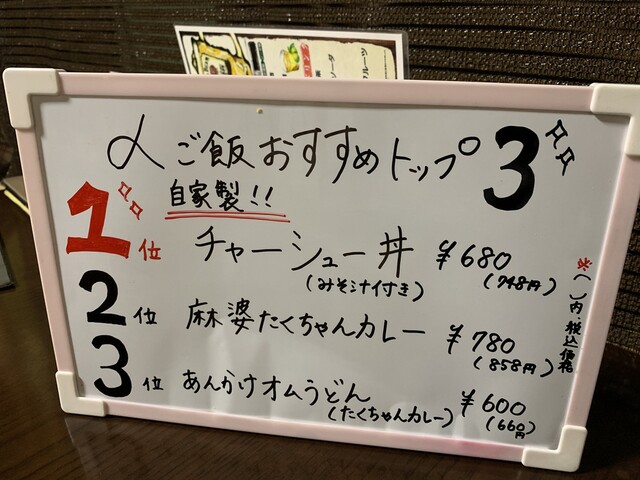 〆ご飯おすすめトップ3
自家製!!
1位 チャーシュー丼 ¥680
(みそ汁付き) (748円)
2位 麻婆たくちゃんカレー ¥780
(858円)
3位 あんかけオムうどん ¥600
(たくちゃんカレー) (660円)
※( )内・税込価格